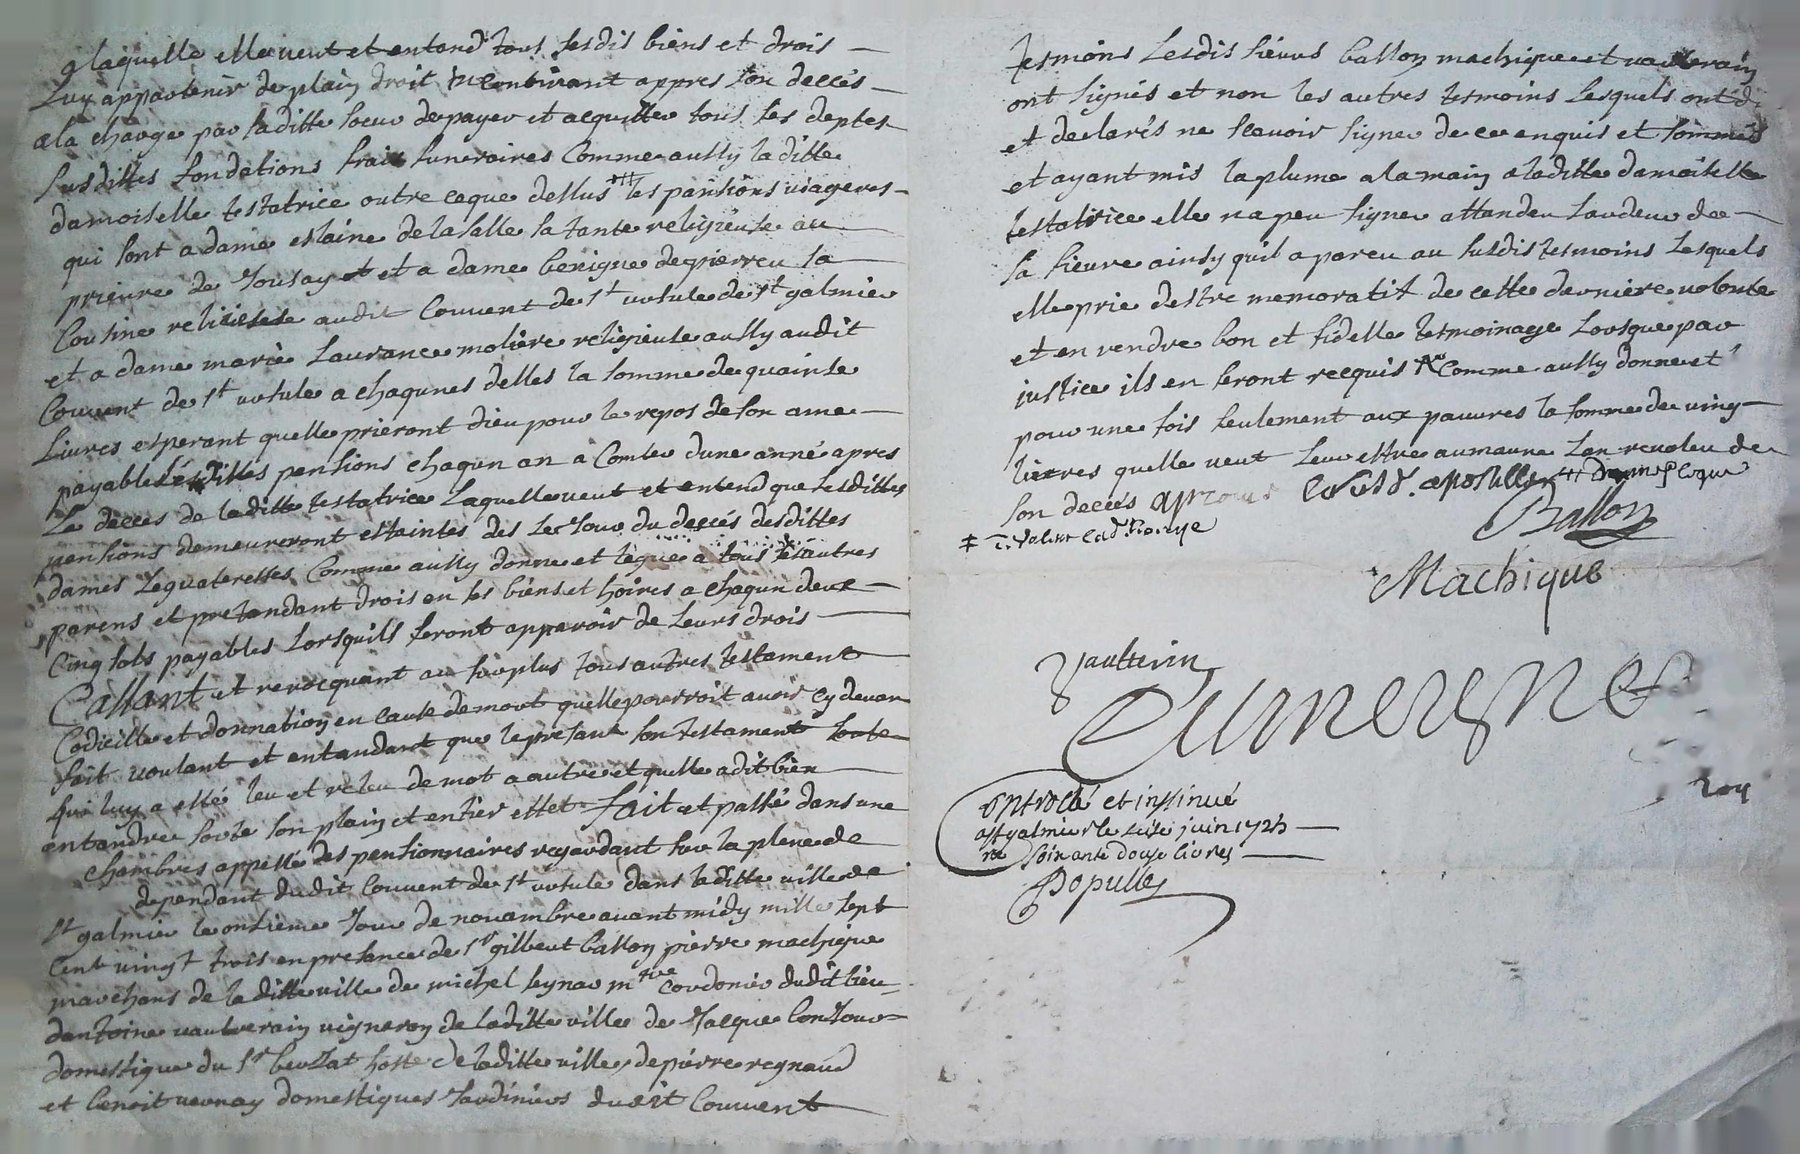 a laquelle elle veut et entend tous sesdis biens et drois
luy appartenir de plain droit incontinant appres son deccés
a la charge par laditte soeur de payer et acquitter tous ses deptes
susdittes fondations frais funeraires comme aussy la ditte
damoiselle testatrice outre ce que dessus les pansions viageres
qui sont a dame estaine de la salle sa tante religieuse au
prieure de Jousay et a dame benigne de pierreu sa
cousine religieuse audit couvent de st ursule de st galmier
et a dame marie Laurance moliere religieuse aussy audit
couvent de st ursule a chaqunes delles la somme de quainse
livres esperant quelle prieront dieu pour le repos de son ame
payables lesdittes pensions chaqun an a comter dune anné apres
le decces de laditte testatrice laquelle veut et entend que lesdittes
pensions demeureront estaintes des le jour du deccés desdittes
dames legateresses comme aussy donne et legue a tous ses autres
parens et pretendant drois en ses biens et hoires a chaqun deux
cinq sols payables lorsquils feront apparoir de leurs drois
Cassant et revocquant au surplus tous autres testament
codicille et donnation en cause de mort quelle pourroit avoir cy devan
fait voulant et entandant que le presant son testament sorte
qui luy a esté leu et releu de mot a autre et quelle a dit bien
entandre sorte son plain et entier effet fait et passé dans une
chambres appellé des pensionnaires regardant sur la place de
dependant dudit couvent de st ursule dans laditte ville de
st galmier le onsieme jour de novambre avant midy mille sept
cent vingt trois en presance de sr gilbert ballon pierre machique
marchans de laditte ville de michel seynar mtre cordonier dudit lieu
dantoine vautherain vigneron de laditte ville de Jacque
domestique du sr hoste de laditte ville, de pierre regnaud
et benoit vernay domestiques jardiniers dudit couvent
tesmoins lesdis sieurs ballon machique et vautherain
ont signés et non les autres tesmoins lesquels ont di
et declarés ne scavoir signer de ce enquis et sommés
et ayant mis la plume a la main a laditte damoiselle
testatrice elle na peu signer attandeu lardeur de
sa fievre ainsy quil a pareu au susdis tesmoins lesquels
elle prie destre memoratif de cette derniere volonté
et en rendre bon et fidelle tesmoinage lorsque par
justice ils en seront recquis comme aussy donne et
pour une fois seulement aux pauvres la somme de ving
livres quelle veut leur estre aumaune lan revoleu de
son deccés
Ballon
Machique
Vautterin
Controlé et insinué
a st galmier le juin 1725
soixante douze livres
Populle